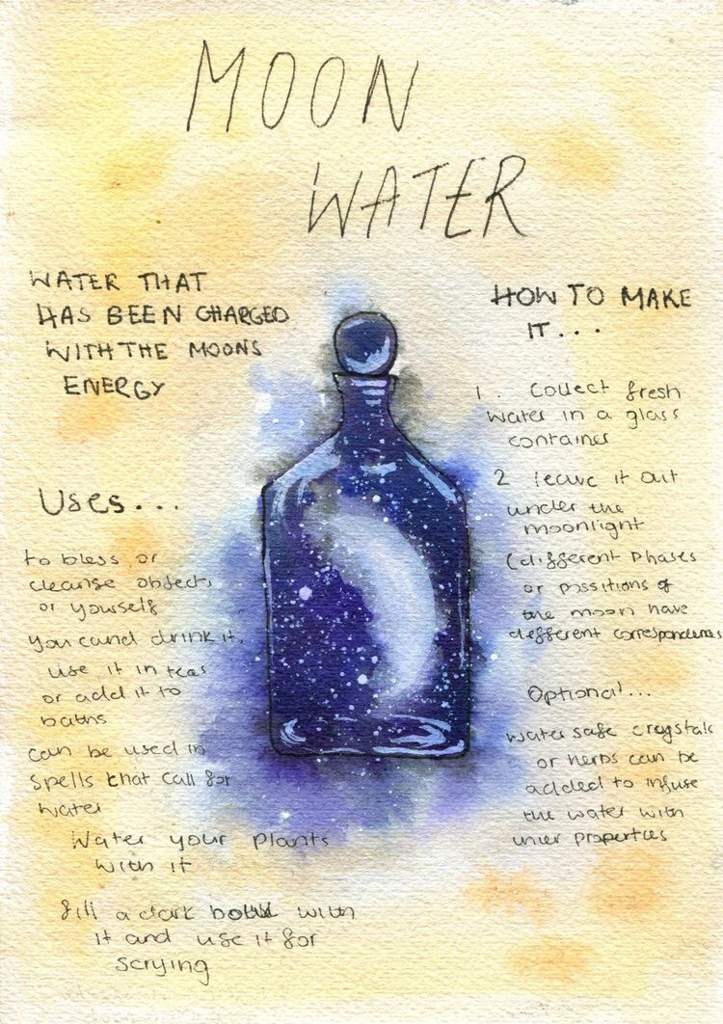 MOON
WATER
WATER THAT
HAS BEEN CHARGED
WITH THE MOONS
ENERGY
USES...
to bless or
cleanse objects
or yourself
you cand drink it,
use it in teas
or add it to
baths
can be used in
spells that call for
water
Water your plants
with it
fill a dark bottle with
it and use it for
scrying
HOW TO MAKE
IT...
1. Collect fresh
water in a glass
container
2 leave it out
under the
moonlight
(different phases
or possitions of
the moon have
different correspondences
Optional...
water safe crystals
or herbs can be
added to infuse
the water with
properties